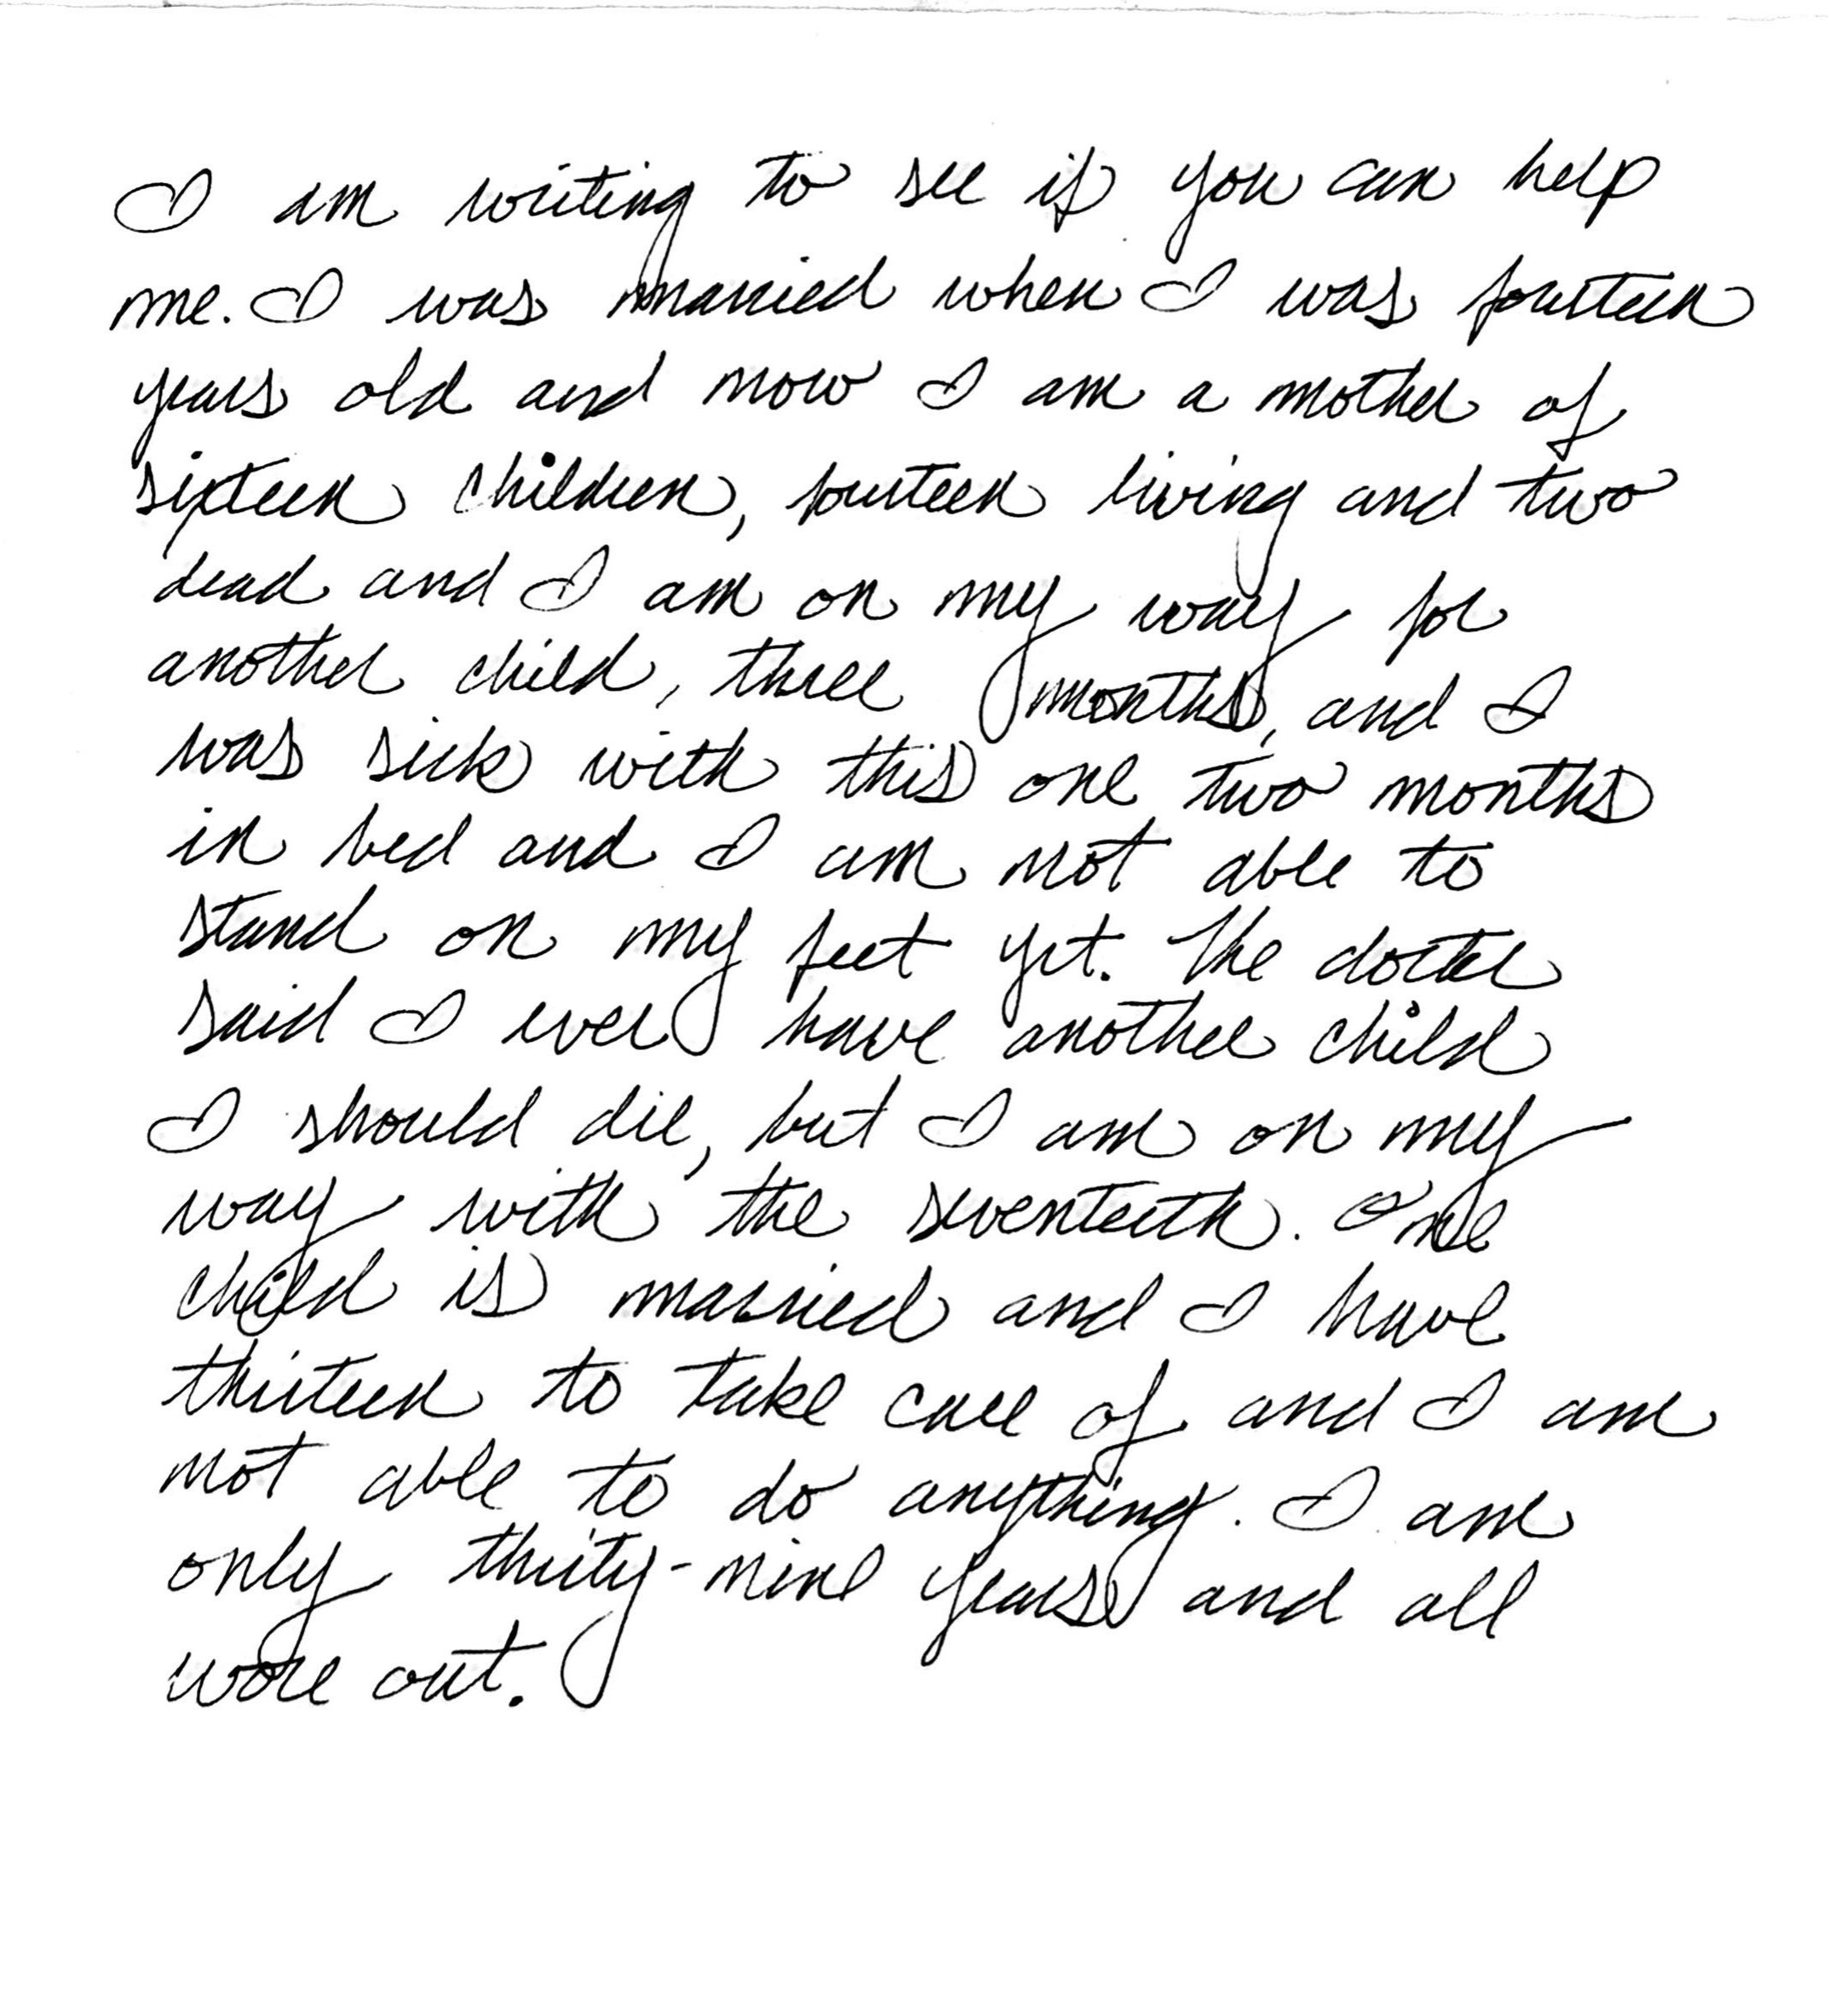 I am writing to see if you can help
me. I was married when I was fourteen
years old and now I am a mother of
sixteen children, fourteen living and two
dead and I am on my way for
another child, three months, and I
was sick with this one two months
in bed and I am not able to
stand on my feet yet. The docter
said I ever have another child
I should die, but I am on my
way with the seventeeth. One
child is married and I have
thirteen to take care of and I am
not able to do anything. I am
only thirty-nine years and all
wore out.